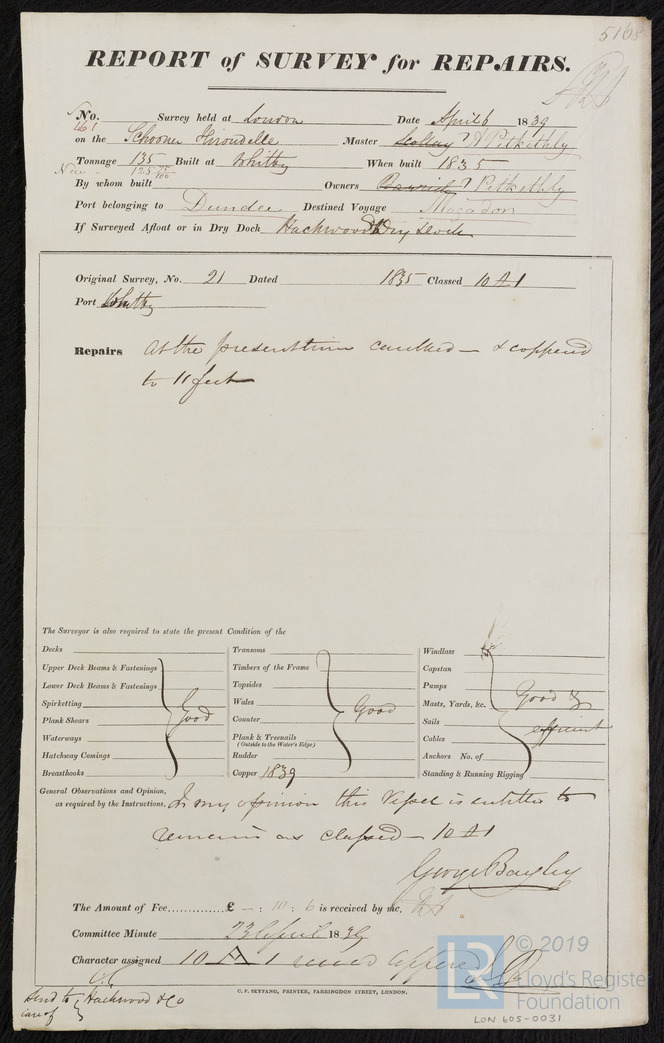 5168
REPORT of SURVEY for REPAIRS.
No. 461 Survey held at London Date April 6 1839
on the Schooner Hirondelle Master Scollay ? Pitkethly
Tonnage 135 Built at Whitby When built 1835
New
By whom built Owners Barrick ? Pitkethly
Port belonging to Dundee Destined Voyage Mogadon
If Surveyed Afloat or in Dry Doch Hackwood Dry Dock
Original Survey, No. 21 Dated 1835 Classed 10 A 1
Port Whitby
Repairs At the present time caulked — & coppered
to 11 feet
The Surveyor is also required to state the present Condition of the
Decks
Upper Deck Beams & Fastenings
Lower Deck Beams & Fastenings
Spirketting
Plank Shears
Waterways
Hatchway Comings
Breasthooks
Good
Transoms
Timbers of the Frame
Topsides
Wales
Counter
Plank & Treenails
(Outside to the Water's Edge)
Rudder
Copper 1839
Good
Windlass
Capstan
Pumps
Masts, Yards, &c.
Sails
Cables
Anchors No. of
Standing & Running Rigging
Good &
efficient
General Observations and Opinion,
as required by the Instructions, In my opinion this Vessel is entitled to
remain as classed — 10 A 1
George Bayley
The Amount of Fee.............. £ — : 10 : 6 is received by me,
Committee Minute 23 April 1839
Character assigned 10 A 1
C. F. SEYFANG, PRINTER, FARRINGDON STREET, LONDON.
Send to Hackwood & Co
care of
LR © 2019
Lloyd's Register
Foundation
LON 605-0031